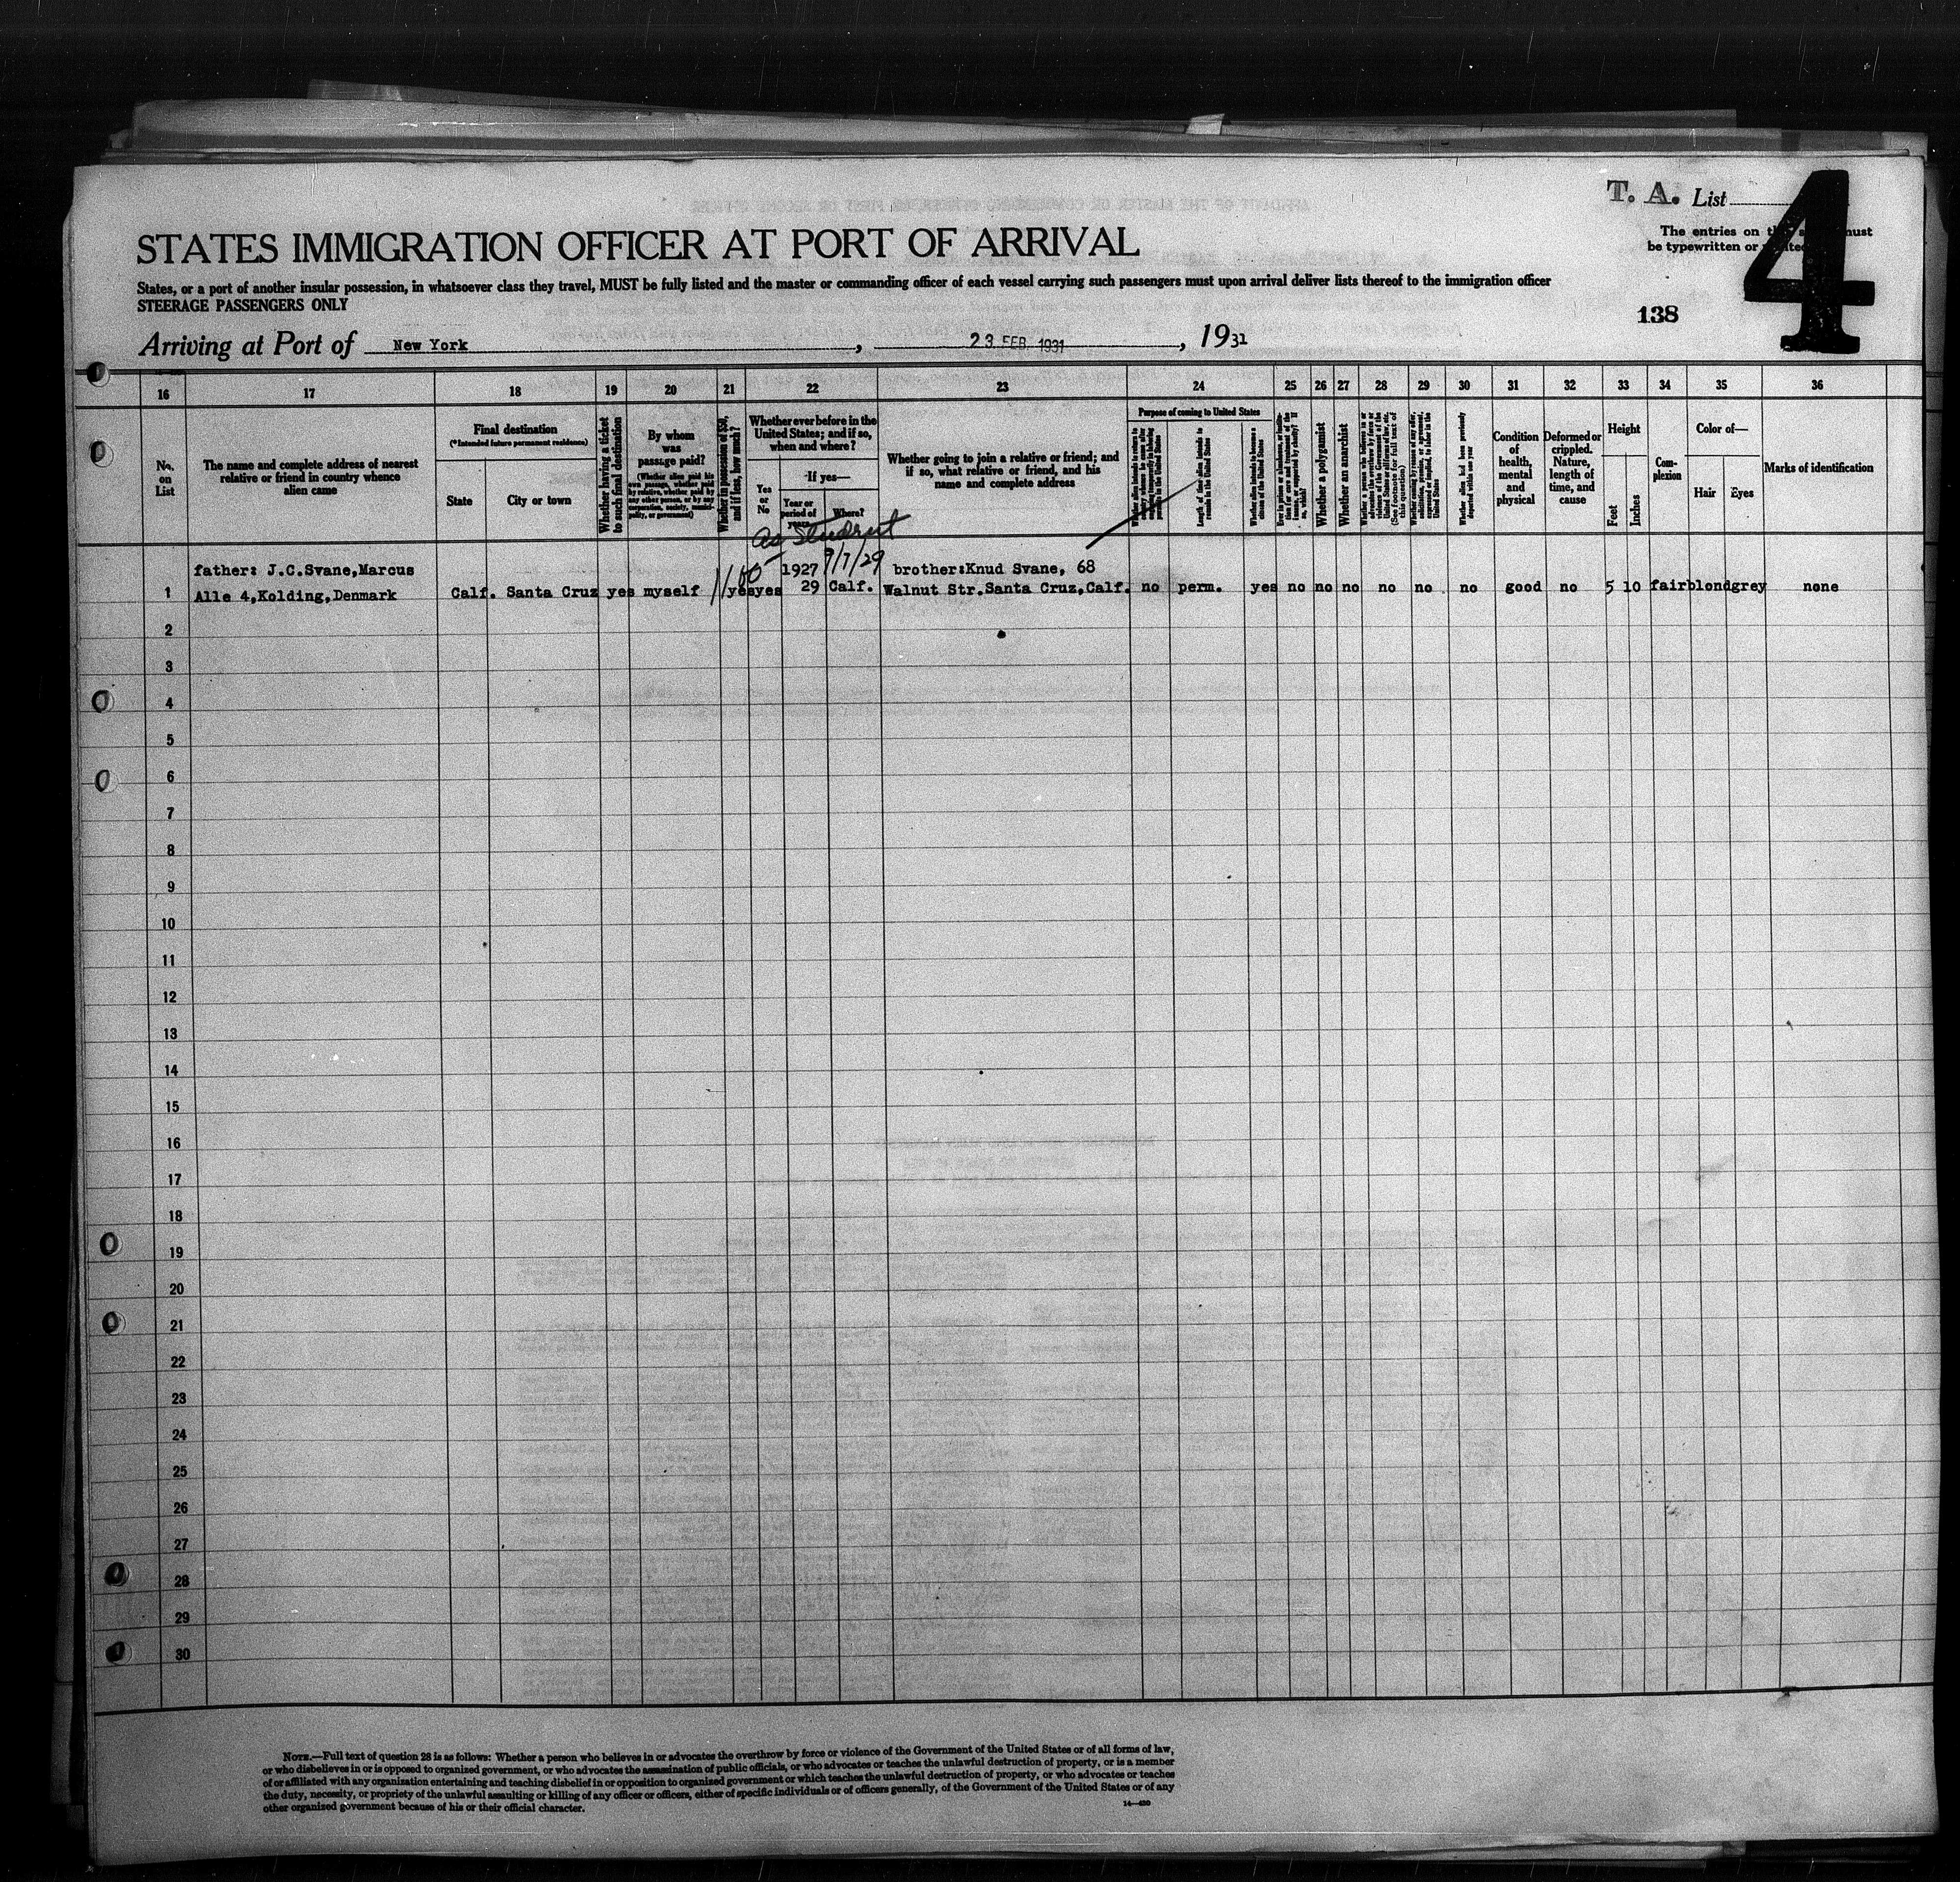 T. A. List
4
The entries on this sheet must
be typewritten or printed
STATES IMMIGRATION OFFICER AT PORT OF ARRIVAL
States, or a port of another insular possession, in whatsoever class they travel, MUST be fully listed and the master or commanding officer of each vessel carrying such passengers must upon arrival deliver lists thereof to the immigration officer
STEERAGE PASSENGERS ONLY
138
Arriving at Port of New York, 23 FEB. 1931, 1931
16 17 18 19 20 21 22 23 24 25 26 27 28 29 30 31 32 33 34 35 36
No. on List
The name and complete address of nearest
relative or friend in country whence
alien came
Final destination
(*Intended future permanent residence)
State
City or town
Whether having a ticket
to such final destination
By whom
was
passage paid?
(Whether alien paid his
own passage, whether paid
by relative, whether paid by
any other person, or by any
corporation, society, munici-
pality, or government)
Whether in possession of $50,
and if less, how much?
Whether ever before in the
United States; and if so,
when and where?
Yes
or
No
If yes—
Year or
period of
years
Where?
Whether going to join a relative or friend; and
if so, what relative or friend, and his
name and complete address
Purpose of coming to United States
Length of time alien intends to
remain in the United States
Whether alien intends to become a
citizen of the United States
Whether a polygamist
Whether an anarchist
Whether alien had been previously
deported within one year
Condition
of
health,
mental
and
physical
Deformed or
crippled.
Nature,
length of
time, and
cause
Height
Feet
Inches
Com-
plexion
Color of—
Hair
Eyes
Marks of identification
As Student
9/7/29
father: J.C.Svane,Marcus 1927 brother:Knud Svane, 68
1 Alle 4,Kolding,Denmark Calf. Santa Cruz yes myself yes yes 29 Calf. Walnut Str.Santa Cruz,Calf. no perm. yes no no no no no no good no 5 10 fair blond grey none
2
3
4
5
6
7
8
9
10
11
12
13
14
15
16
17
18
19
20
21
22
23
24
25
26
27
28
29
30
NOTE.—Full text of question 28 is as follows: Whether a person who believes in or advocates the overthrow by force or violence of the Government of the United States or of all forms of law,
or who disbelieves in or is opposed to organized government, or who advocates the assassination of public officials, or who advocates or teaches the unlawful destruction of property, or is a member
of or affiliated with any organization entertaining and teaching disbelief in or opposition to organized government or which teaches the unlawful destruction of property, or who advocates or teaches
the duty, necessity, or propriety of the unlawful assaulting or killing of any officer or officers, either of specific individuals or of officers generally, of the Government of the United States or of any
other organized government because of his or their official character.